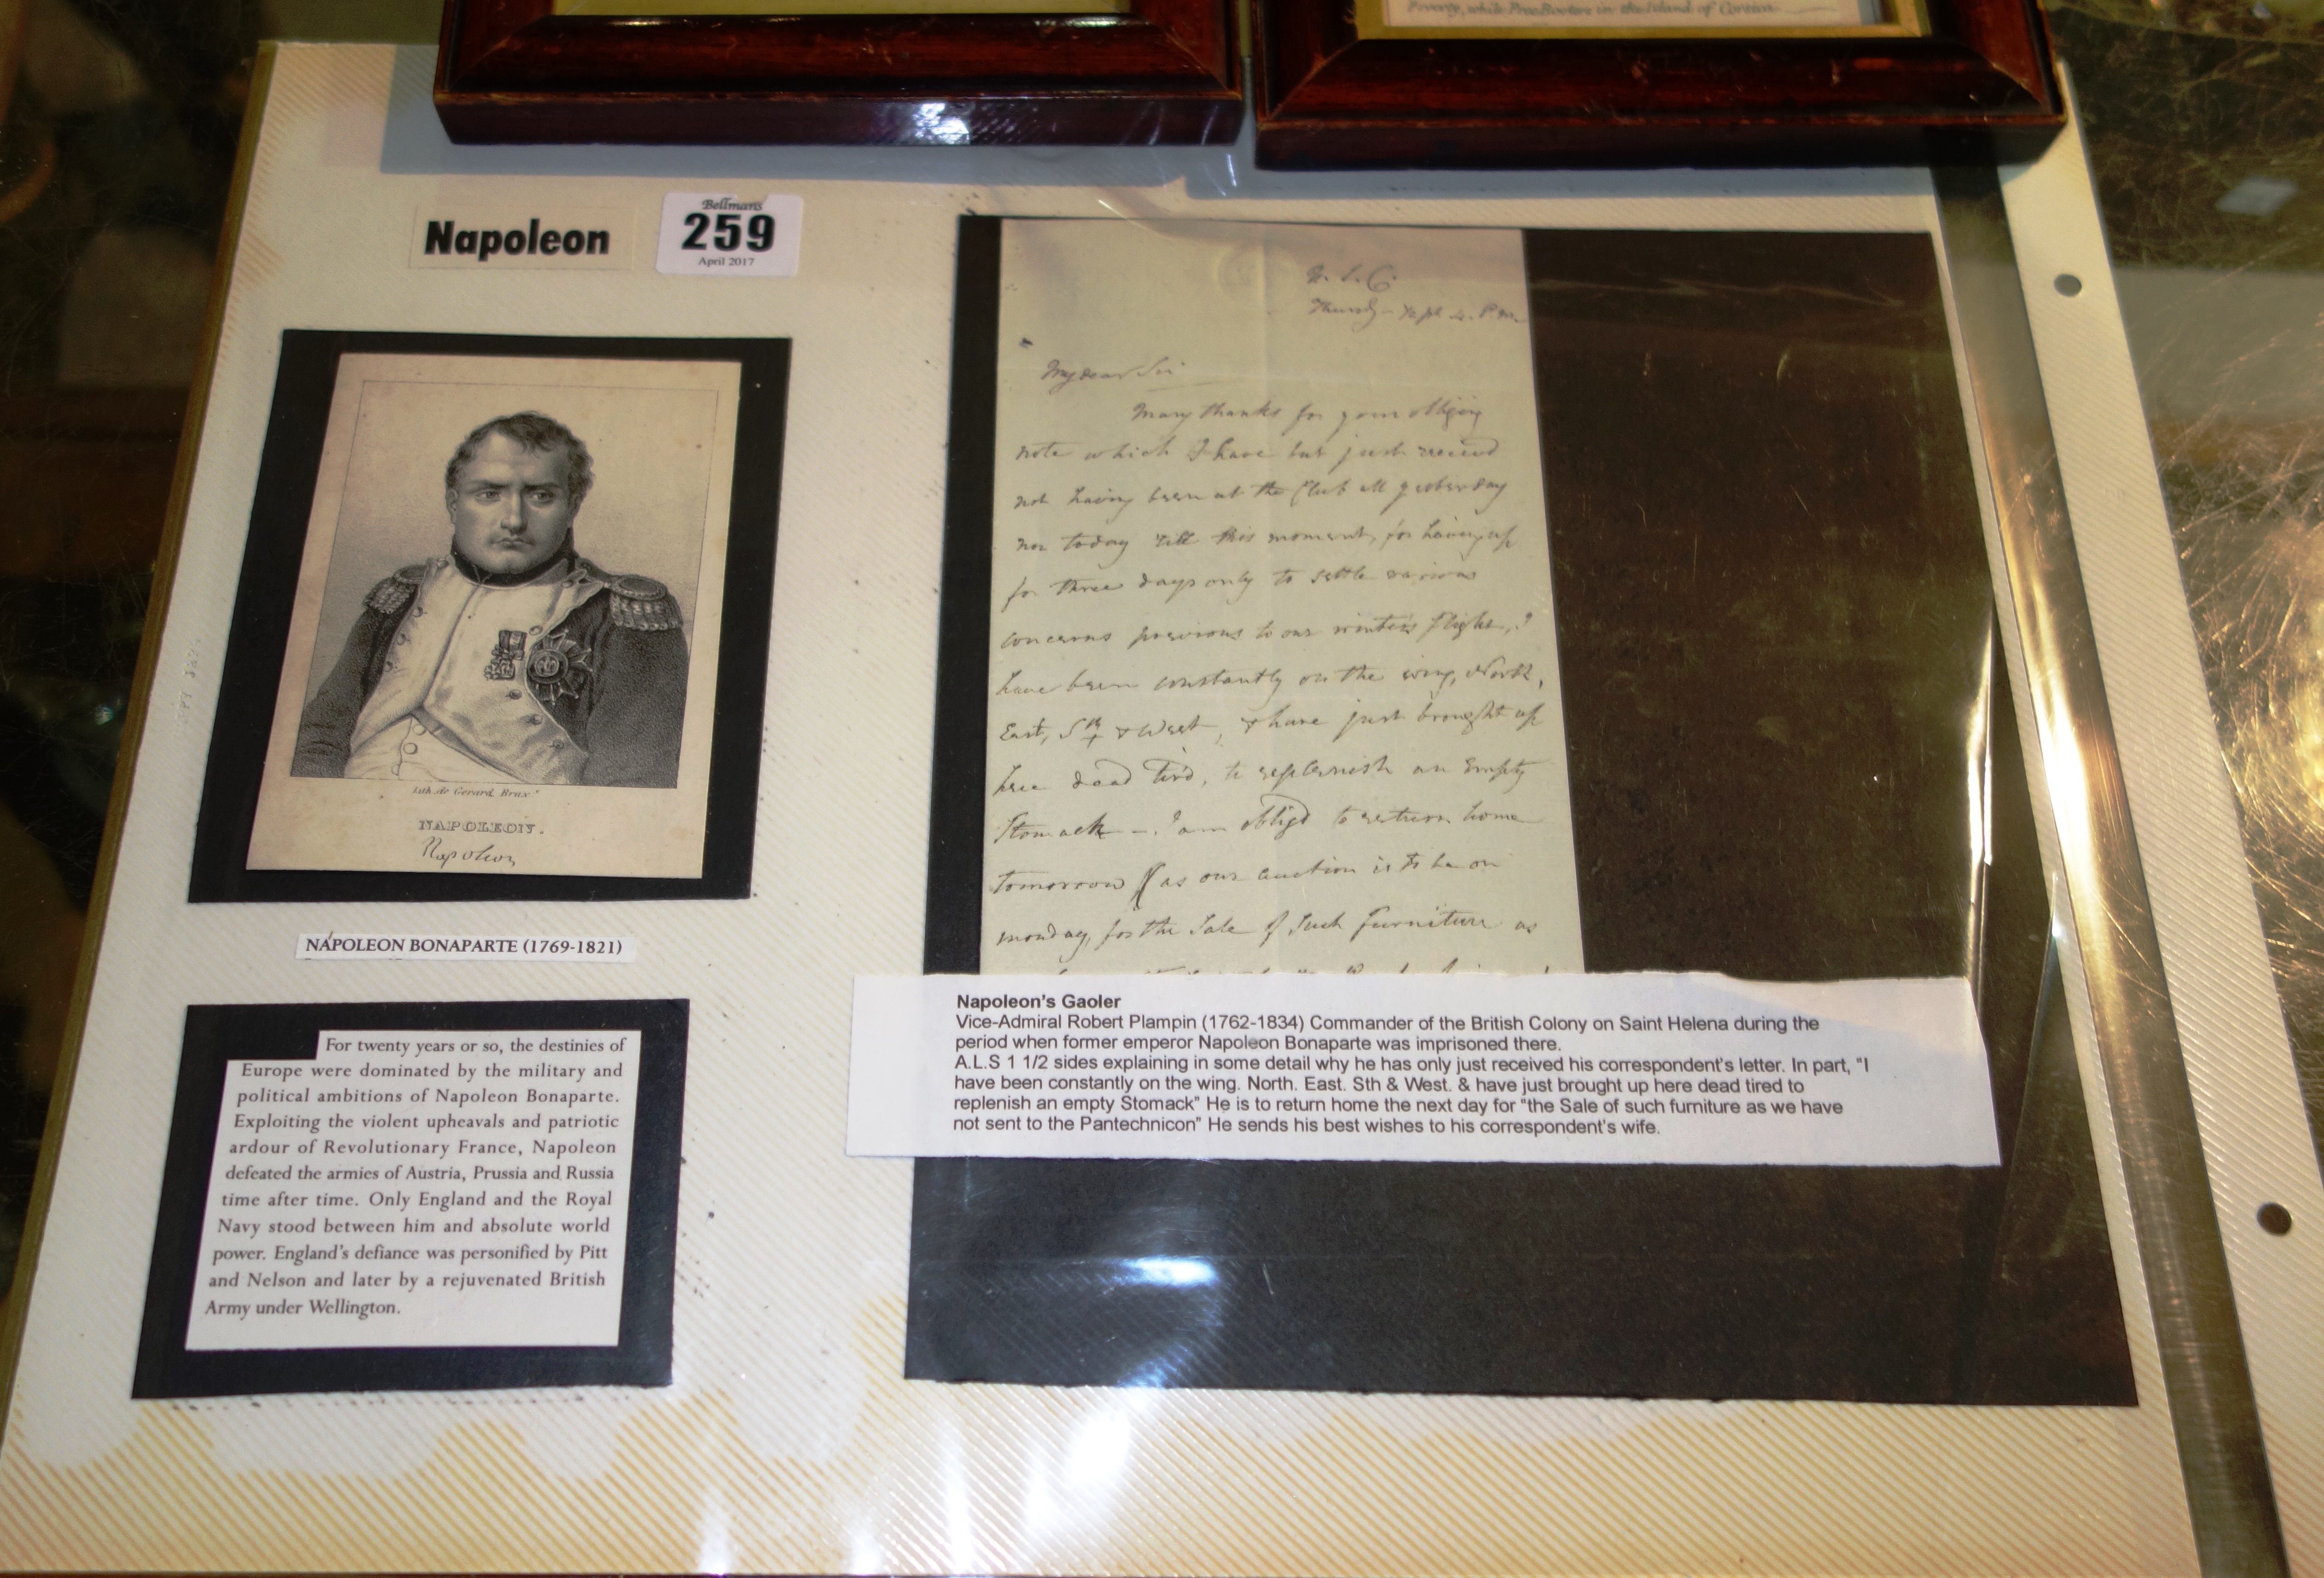 Poverty, while Free Booters in the Island of Corsica.
Napoleon
Bellmans
259
April 2017
Lith. de Gerard, Brux.
NAPOLEON.
Napoleon
NAPOLEON BONAPARTE (1769-1821)
For twenty years or so, the destinies of
Europe were dominated by the military and
political ambitions of Napoleon Bonaparte.
Exploiting the violent upheavals and patriotic
ardour of Revolutionary France, Napoleon
defeated the armies of Austria, Prussia and Russia
time after time. Only England and the Royal
Navy stood between him and absolute world
power. England's defiance was personified by Pitt
and Nelson and later by a rejuvenated British
Army under Wellington.
My dear Sir
Many thanks for your obliging
note which I have but just receivd
not having been at the Club all yesterday
nor today till this moment, for having up
for three days only to settle various
concerns previous to our winter's flight, I
have been constantly on the wing, North,
East, Sth & West, & have just brought up
here dead tir'd, to replenish an Empty
Stomack – I am obligd to return home
tomorrow as our auction is to be on
monday, for the Sale of Such furniture as
Napoleon's Gaoler
Vice-Admiral Robert Plampin (1762-1834) Commander of the British Colony on Saint Helena during the
period when former emperor Napoleon Bonaparte was imprisoned there.
A.L.S 1 1/2 sides explaining in some detail why he has only just received his correspondent's letter. In part, "I
have been constantly on the wing. North. East. Sth & West. & have just brought up here dead tired to
replenish an empty Stomack" He is to return home the next day for "the Sale of such furniture as we have
not sent to the Pantechnicon" He sends his best wishes to his correspondent's wife.